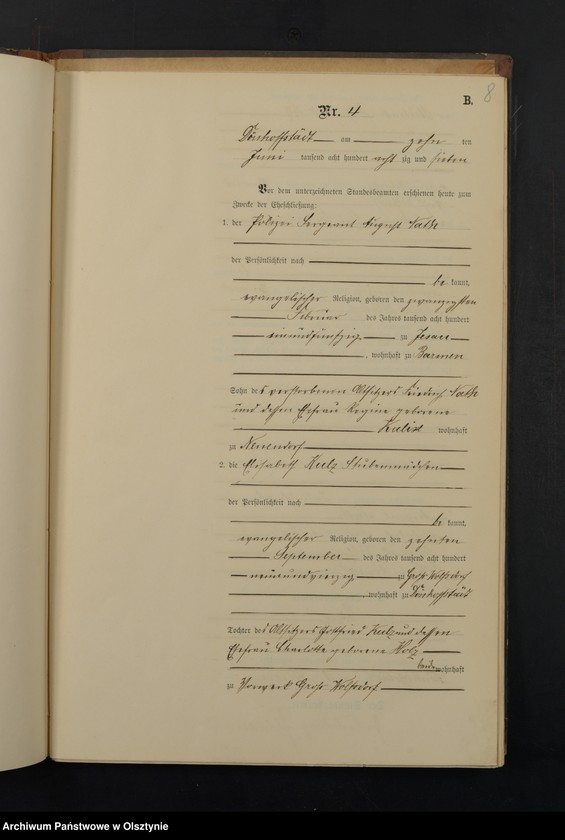 8
B.
Nr. 4
Dönhoffstädt am zehn ten
Juni tausend acht hundert acht zig und sieben
Vor dem unterzeichneten Standesbeamten erschienen heute zum
Zwecke der Eheschließung:
1. der Polizei Sergeant August
der Persönlichkeit nach
be kannt,
evangelischer Religion, geboren den zwanzigsten
Februar des Jahres tausend acht hundert
einundfünfzig zu
, wohnhaft zu Barmen
Sohn des verstorbenen Altsitzers Friedrich
und dessen Ehefrau Regine geborene
wohnhaft
zu Neuendorf
2. die Elisabeth Kulz Stubenmädchen
der Persönlichkeit nach
be kannt,
evangelischer Religion, geboren den zehnten
September des Jahres tausend acht hundert
neunundvierzig zu Groß Wolfsdorf
, wohnhaft zu Dönhoffstädt
Tochter des Altsitzers Gottfried Kulz und dessen
Ehefrau Charlotte geborene Holz
beide wohnhaft
zu Vorwerk Groß Wolfsdorf
Archiwum Państwowe w Olsztynie